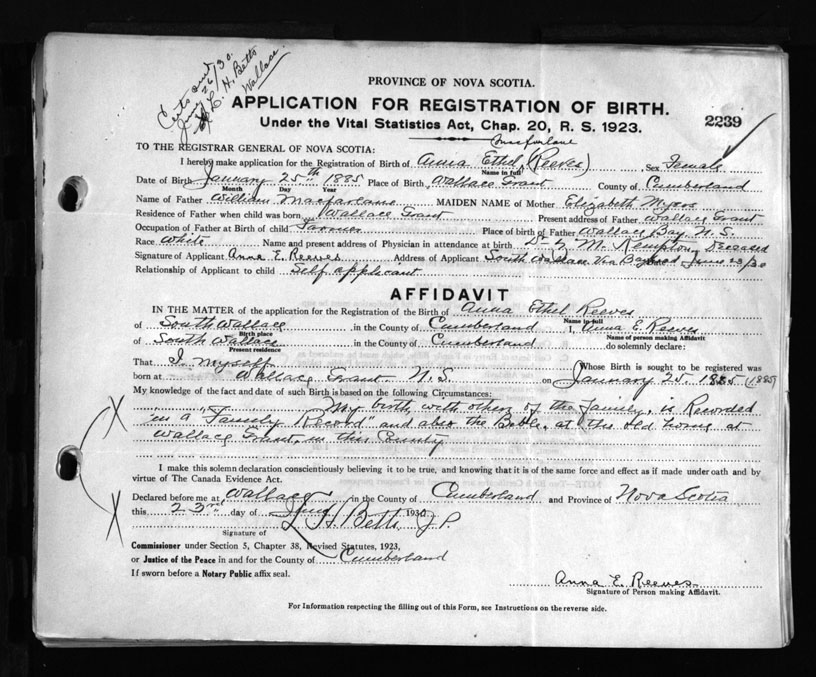 Certs out
June 26/30.
L. H. Betts
Wallace.
PROVINCE OF NOVA SCOTIA.
APPLICATION FOR REGISTRATION OF BIRTH.
Under the Vital Statistics Act, Chap. 20, R. S. 1923.
2239
TO THE REGISTRAR GENERAL OF NOVA SCOTIA:
Macfarlane
I hereby make application for the Registration of Birth of Anna Ethel (Reeves) Sex Female
Name in full
Date of Birth January 25th 1885 Place of Birth Wallace Grant County of Cumberland
Month Day Year
Name of Father William Macfarlane MAIDEN NAME of Mother Elizabeth Myers
Residence of Father when child was born Wallace Grant Present address of Father Wallace Grant
Occupation of Father at Birth of child Farmer Place of birth of Father Wallace Bay N. S.
Race White Name and present address of Physician in attendance at birth M. Kempton Deceased
Signature of Applicant Anna E. Reeves Address of Applicant South Wallace Via June 23/30
Relationship of Applicant to child Self applicant
AFFIDAVIT
IN THE MATTER of the application for the Registration of the Birth of Anna Ethel Reeves
Name in full
of South Wallace in the County of Cumberland I, Anna E. Reeves
Birth place Name of person making Affidavit
of South Wallace in the County of Cumberland do solemnly declare:
Present residence
That I myself Whose Birth is sought to be registered was
born at Wallace Grant N. S. on January 25 1885 (1885)
My knowledge of the fact and date of such Birth is based on the following Circumstances:
My birth, with others of the family, is Recorded
in a "Family Record" and also the Bible, at the old home at
Wallace Grant, in this County
I make this solemn declaration conscientiously believing it to be true, and knowing that it is of the same force and effect as if made under oath and by
virtue of The Canada Evidence Act.
Declared before me at Wallace in the County of Cumberland and Province of Nova Scotia
this 23rd day of June 1930
L H Betts J P.
Signature of
Commissioner under Section 5, Chapter 38, Revised Statutes, 1923,
or Justice of the Peace in and for the County of Cumberland
If sworn before a Notary Public affix seal.
Anna E. Reeves
Signature of Person making Affidavit.
For Information respecting the filling out of this Form, see Instructions on the reverse side.